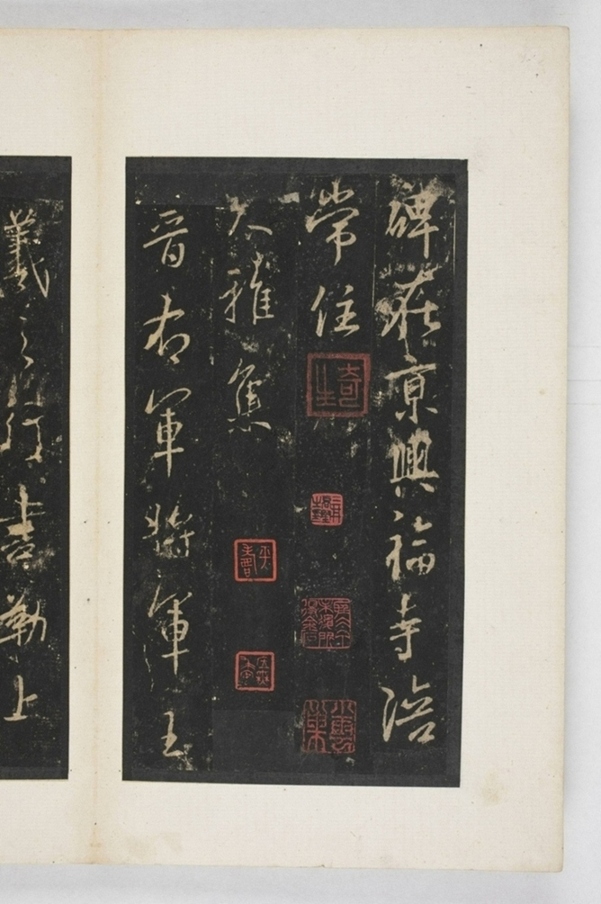 碑在京興福寺陪
常住
大雅集
晉右軍將軍王
羲之行書勒上